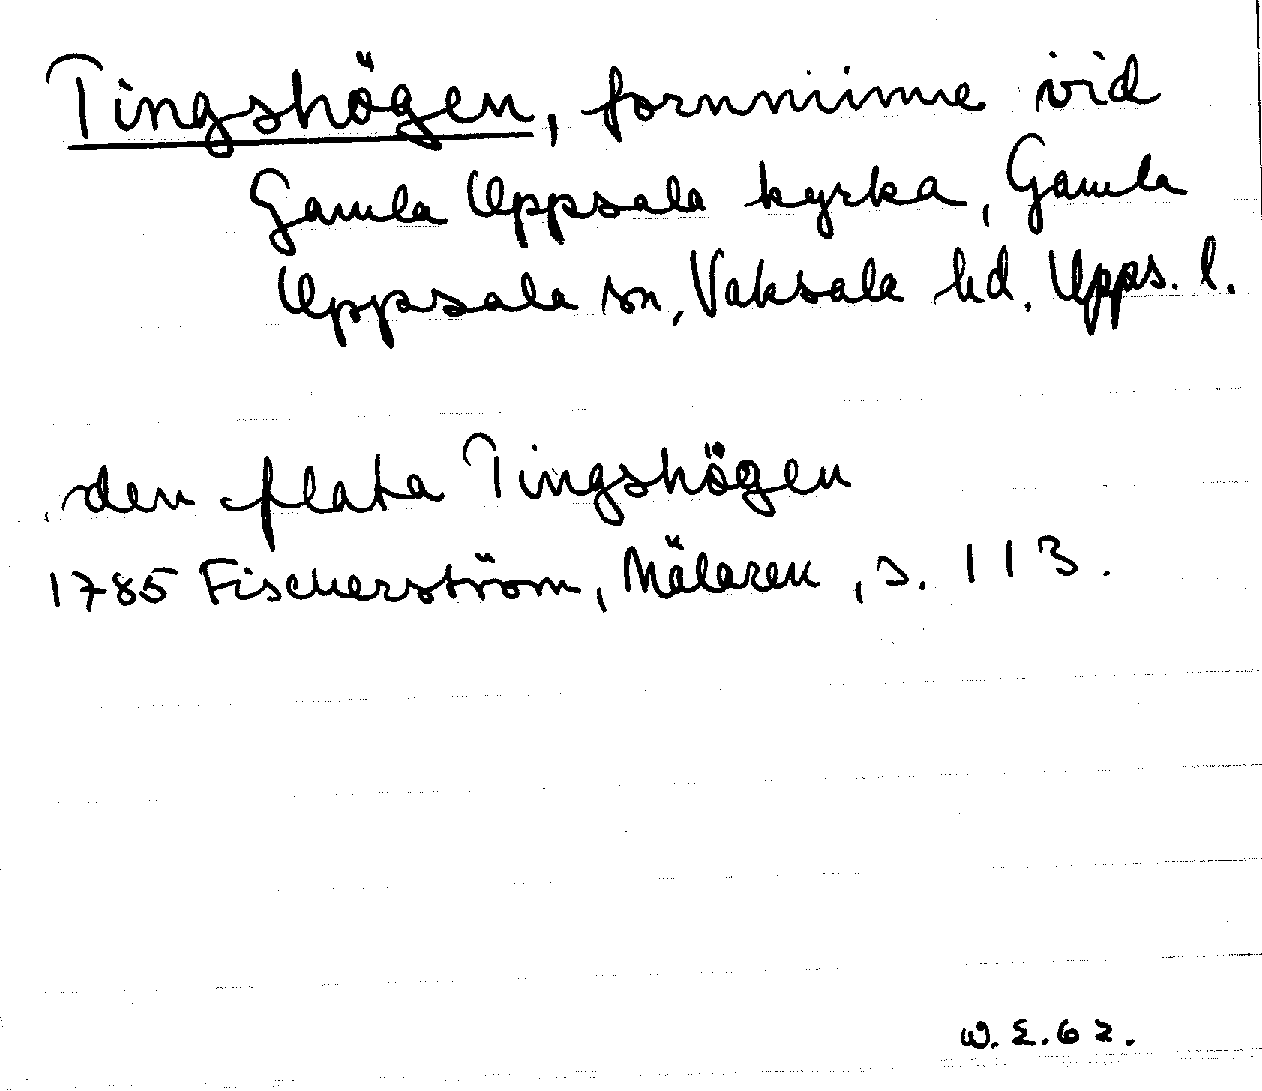 Tingshögen, fornminne vid
Gamla Uppsala kyrka, Gamla
Uppsala sn, Vaksala hd, Upps. l.
den flata Tingshögen
1785 Fischerström, Mälaren, s. 113.
W. E. 62.